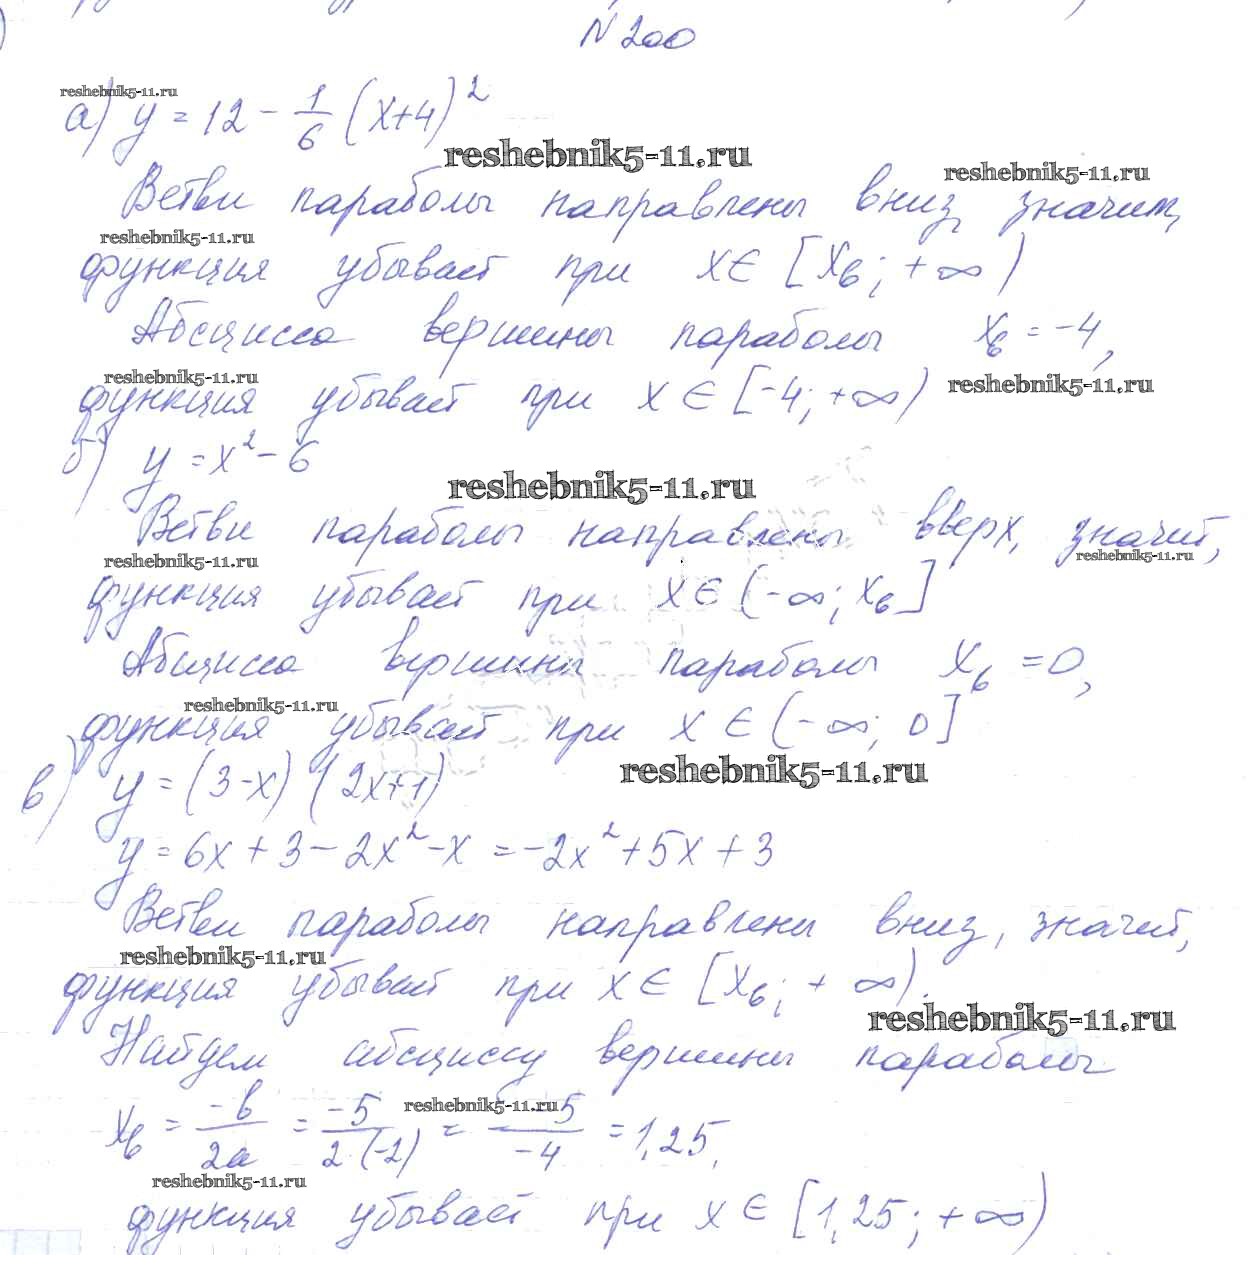 N 200
reshebnik5-11.ru
а) y = 12 - 1/6 (x+4)²
reshebnik5-11.ru
Ветви параболы направлены вниз, значит,
reshebnik5-11.ru
reshebnik5-11.ru
функция убывает при x ∈ [xв; +∞)
Абсцисса вершины параболы xв = -4,
reshebnik5-11.ru
функция убывает при x ∈ [-4; +∞)
reshebnik5-11.ru
б) y = x² - 6
reshebnik5-11.ru
Ветви параболы направлены вверх, значит,
reshebnik5-11.ru
reshebnik5-11.ru
функция убывает при x ∈ (-∞; xв]
Абсцисса вершины параболы xв = 0,
reshebnik5-11.ru
функция убывает при x ∈ (-∞; 0]
reshebnik5-11.ru
в) y = (3-x) (2x+1)
y = 6x + 3 - 2x² - x = -2x² + 5x + 3
Ветви параболы направлены вниз, значит,
reshebnik5-11.ru
функция убывает при x ∈ [xв; +∞).
reshebnik5-11.ru
Найдем абсциссу вершины параболы
reshebnik5-11.ru
xв = -b/2a = -5/2·(-2) = -5/-4 = 1,25,
reshebnik5-11.ru
функция убывает при x ∈ [1,25; +∞)